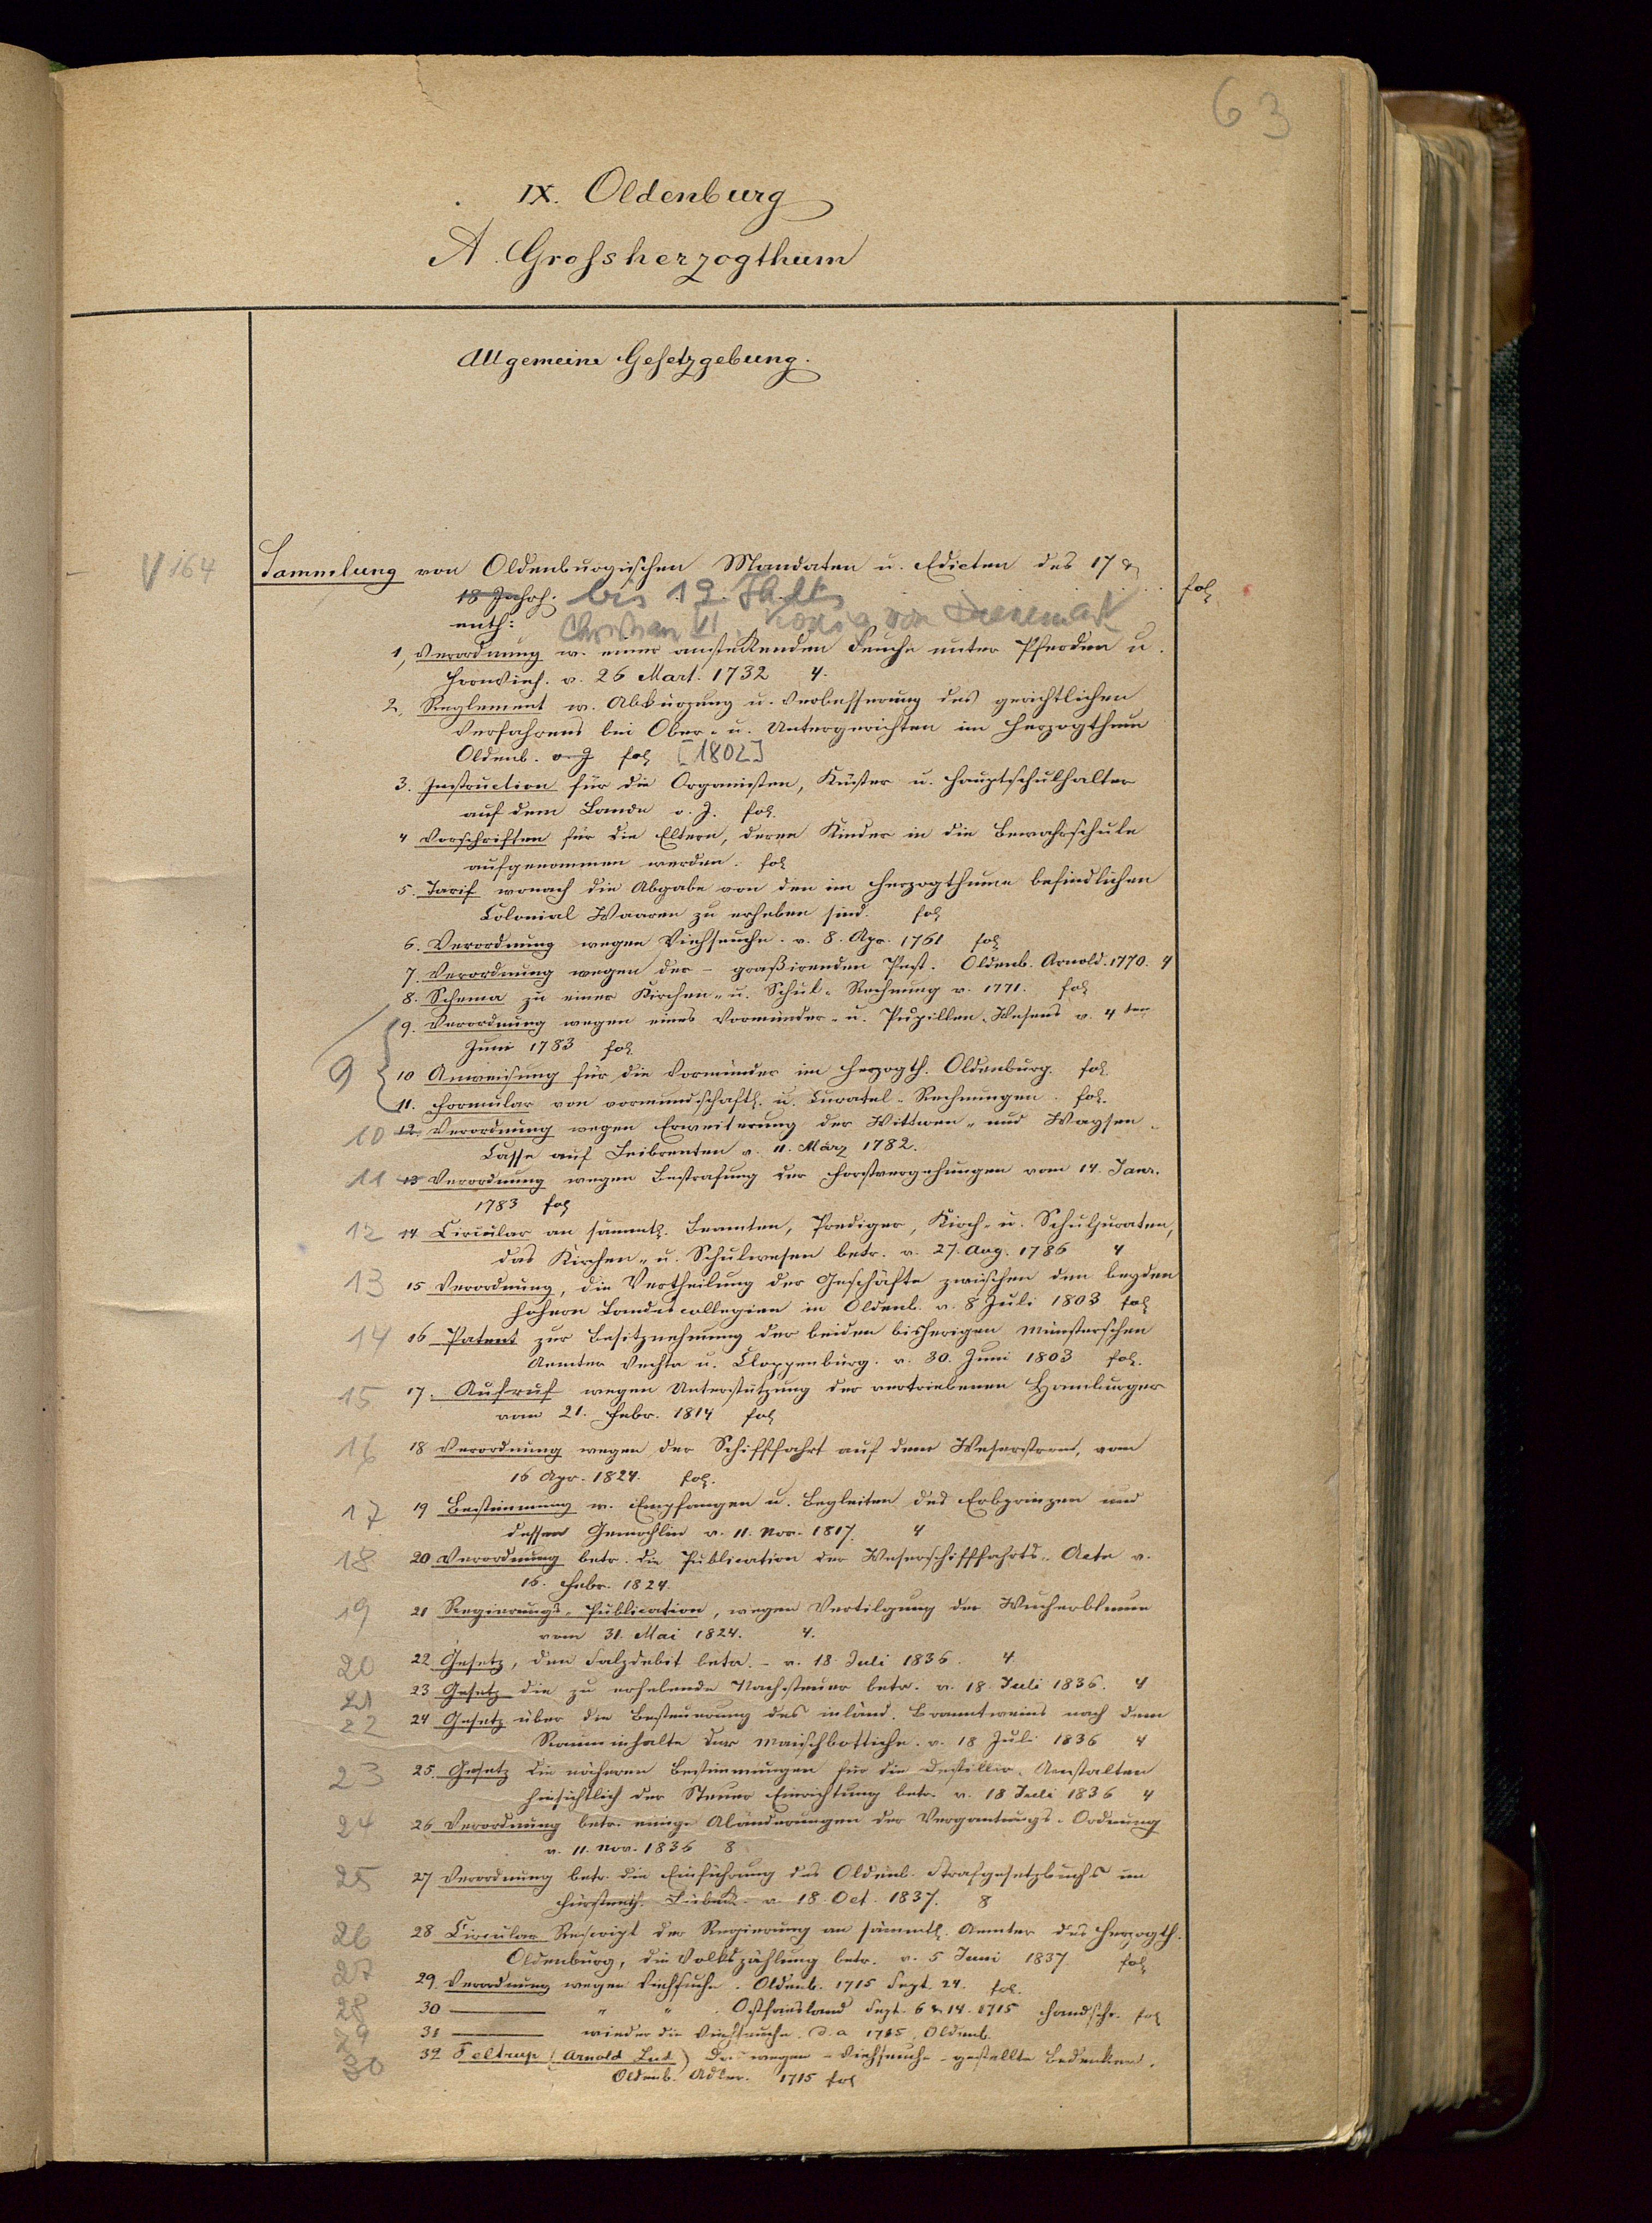 63
IX. Oldenburg
A. Grofsherzogthum
Allgemeine Gesetzgebung.
V 164 Sammlung von Oldenburgischen Mandaten u. Edicten des 17 &
18 Jahrh. bis 19. Jhdts fol
enth: Christian VI. König von Daenemark
1, Verordnung w. einer ansteckenden Seuche unter Pferden u.
Hornvieh. v. 26 Mart. 1732 4.
2, Reglement w. Abkürzung u. Verbesserung des gerichtlichen
Verfahrens bei Ober- u. Untergerichten im Herzogthum
Oldenb. o J fol [1802]
3. Instruction für die Organisten, Küster u. Hauptschulhalter
auf dem Lande o. J. fol.
4 Vorschriften für die Eltern, deren Kinder in die Bewahrschule
aufgenommen werden. fol
5. Tarif wonach die Abgabe von den im Herzogthume befindlichen
Colonial Waaren zu erheben sind. fol
6. Verordnung wegen Viehseuche. v. 8. Apr. 1761 fol
7. Verordnung wegen der - graßirenden Pest. Oldenb. Arnold. 1770. 4
8. Schema zu einer Kirchen- u. Schul-Rechnung v. 1771. fol
9. Verordnung wegen eines Vormünder- u. Pupillen-Wesens v. 4ten
Juni 1783 fol.
9 10 Anweisung für die Vormünder im Herzogth. Oldenburg. fol.
11. Formular von vormundschaftl. u. Curatel-Rechnungen. fol.
10 12 Verordnung wegen Erweiterung der Wittwen- und Waysen-
Casse auf Leibrenten v. 11. März 1782.
11 13 Verordnung wegen Bestrafung der Forstvergehungen vom 14. Janr.
1783 fol
12 14 Circular an sämmtl. Beamten, Prediger, Kirch- u. Schuljuraten,
das Kirchen- u. Schulwesen betr. v. 27. Aug. 1786 4
13 15 Verordnung, die Vertheilung der Geschäfte zwischen den beyden
höhern Landescollegien in Oldenb. v. 8 Juli 1803 fol
14 16 Patent zur Besitznehmung der beiden bisherigen Münsterschen
Aemter Vechta u. Cloppenburg. v. 30. Juni 1803 fol.
15 17. Aufruf wegen Unterstützung der vertriebenen Hamburger
vom 21. Febr. 1814 fol
16 18 Verordnung wegen der Schifffahrt auf dem Weserstrom, vom
16 Apr. 1824. fol.
17 19 Bestimmung w. Empfangen u. Begleiten des Erbprinzen und
dessen Gemahlin v. 11. Nov. 1817. 4
18 20 Verordnung betr. die Publication der Weserschifffahrts-Acte v.
16. Febr. 1824.
19 21 Regierungs-Publication, wegen Vertilgung der Wucherblume
vom 31. Mai 1824. 4.
20 22 Gesetz, den Salzdebit betr. - v. 18 Juli 1836. 4.
21 23 Gesetz die zu erhebende Nachsteuer betr. v. 18 Juli 1836. 4
22 24 Gesetz über die Besteuerung des inländ. Branntweins nach dem
Rauminhalte der Maischbottiche. v. 18 Juli 1836 4
23 25. Gesetz die näheren Bestimmungen für die Destillir-Anstalten
hinsichtlich der Steuer Einrichtung betr. v. 18 Juli 1836 4
24 26 Verordnung betr. einige Abänderungen der Vergantungs-Ordnung
v. 11. Nov. 1836 8
25 27 Verordnung betr. die Einführung des Oldenb. Strafgesetzbuchs im
Fürstenth. Lübeck. v. 18 Oct. 1837. 8
26 28 Circular Rescript der Regierung an sämmtl. Aemter des Herzogth.
Oldenburg, die Volkszählung betr. v. 5 Juni 1837 fol
27 29 Verordnung wegen Viehseuche. Oldenb. 1715 Sept. 24. fol.
28 30 " " Ostfriesland Sept. 6 & 14. 1715 Handschr. fol
29 31 wieder die Viehseuche. d. a 1715, Oldenb.
30 32 Feltrup (Arnold Lud) Die wegen - Viehseuche - gestellte Bedenken,
Oldenb. Adler. 1715 fol